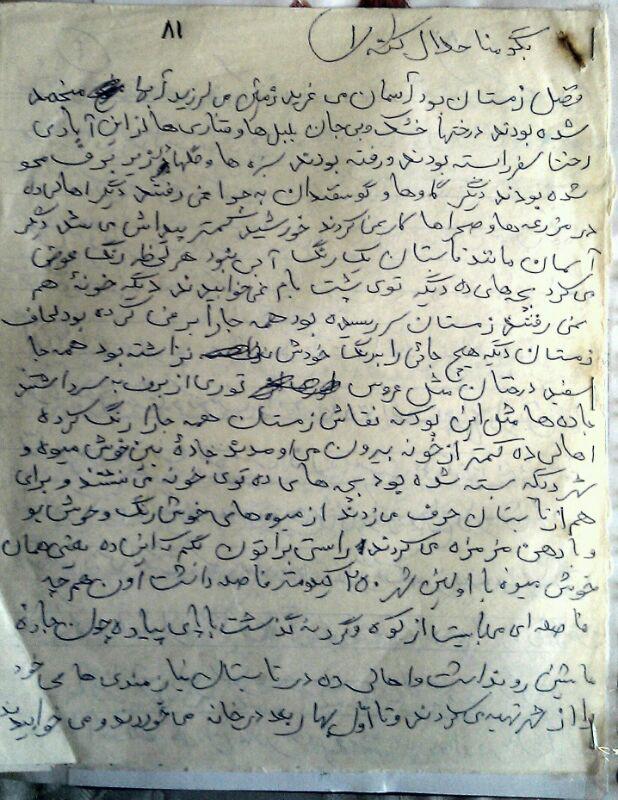 ۸۱
بگو منا حلال کنه
فصل زمستان بود آسمان می غرید زمین می لرزید آبها منجمد
شده بودند درختها خشک و بی جان بلبل ها و قناری ها از این آبادی
رخت سفر بسته بودند و رفته بودند سبزه ها و گلها زیر برف محو
شده بودند دیگر گاوها و گوسفندان به چرا نمی رفتند دیگر اهالی ده
در مزرعه ها و صحراها کار نمی کردند خورشید کمتر پیداش می شد دیگر
آسمان مانند تابستان یک رنگ آبی نبود هر لحظه رنگ عوض
می کرد بچه های ده دیگر توی پشت بام نمی خوابیدند دیگه خونهٔ هم
نمی رفتند زمستان سر رسیده بود همه جا را برف می کرده بود لحاف
زمستان دیگه هیچ جائی را برنگ خودش نزاشته بود همه جا
سفید درختان مثل عروس توری از برف به سر داشتند
جاده ها مثل این بود که نقاش زمستان همه جا را رنگ کرده
اهالی ده کمتر از خونه بیرون می اومدند جادهٔ بین خوش میوه و
شهر دیگه بسته شده بود بچه های ده توی خونه می نشتند و برای
هم از تابستان حرف می زدند از میوه های خوش رنگ و خوش بو
و با دهن مزمزه می کردند راستی براتون بگم که این ده یعنی همان
خوش میوه با اولین شهر ۲۵۰ کیلومتر فاصله داشت اون هم چه
فاصله ای می بایست از کوه و گردنه گذشت با پای پیاده چون جاده
ماشین رو نداشت و اهالی ده در تابستان نیازمندی ها ی خود
را از شهر تهیه می کردند و تا اول بهار بعد در خانه می خوردند و می خوابیدند